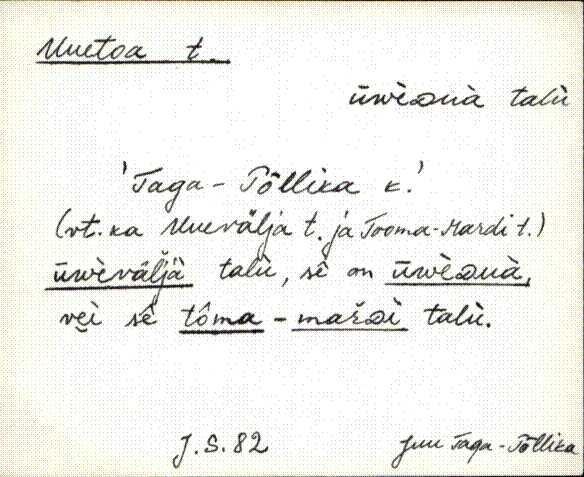 Uuetoa t.
ūwèᴅuà talù
'Taga-Põllika k.'
(vt. ka Uuevälja t. ja Tooma-Mardi t.)
ūwèväl̆jà talù, sê on ūwèᴅuà,
vẹì sê tôma-mar̆ᴅì talù.
J.S. 82
Juu Taga-Põllika